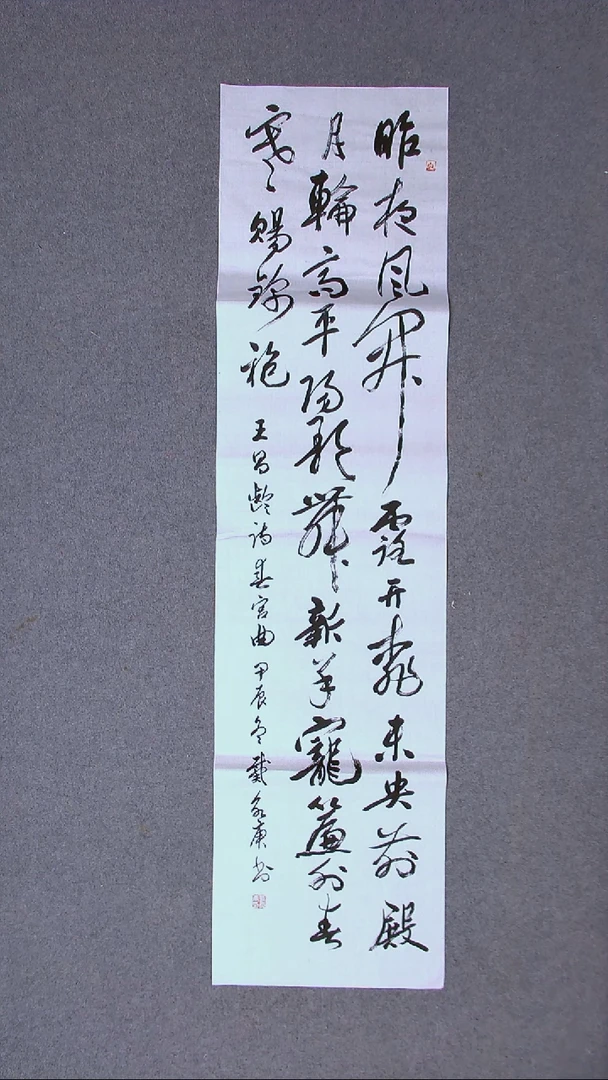 昨夜風開露井桃未央前殿
月輪高平陽歌舞新承寵簾外春
寒賜錦袍 王昌齡詩春宮曲 甲辰冬戴書